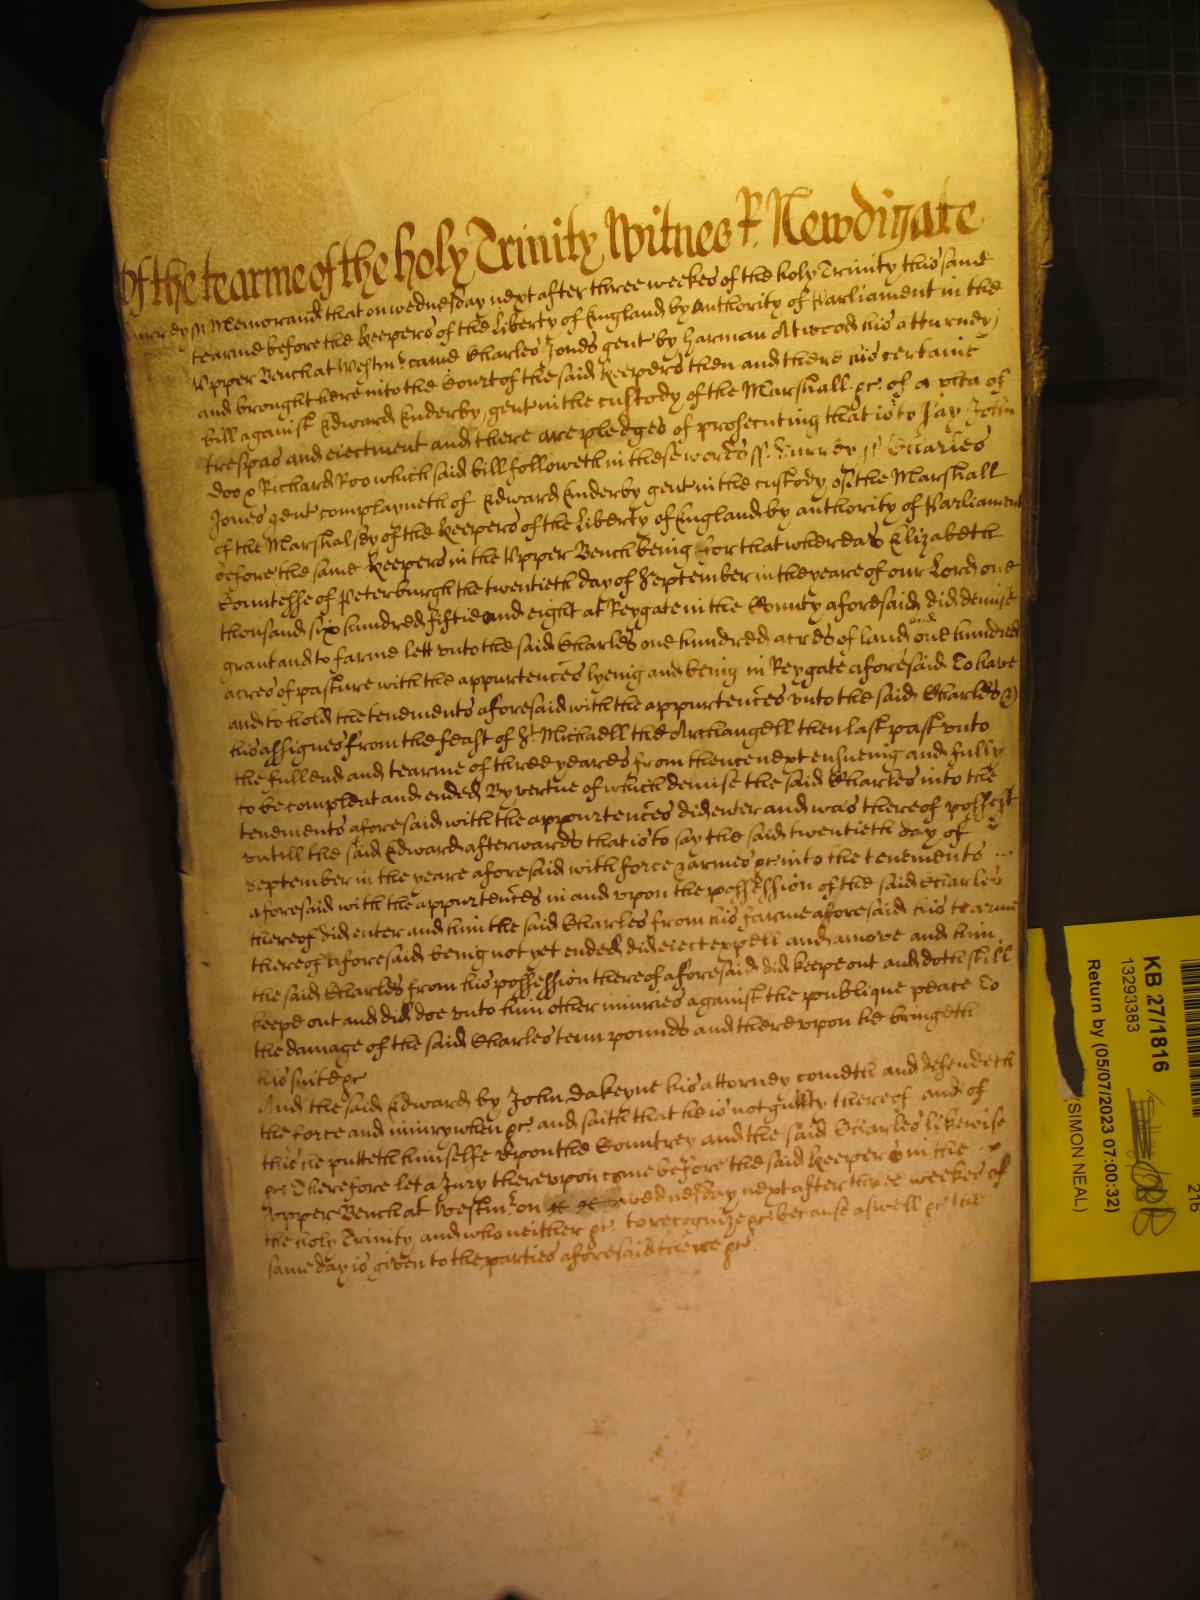 Of the tearme of the holy Trinity Witnes R. Newdigate
Surrey ss Memorand that on wednesday next after three weekes of the holy Trinity this same
tearme before the Keepers of the Liberty of England by Authority of Parliament in the
Upper Bench at Westmr came Charles Jones gent by Harman Atwood his atturney
and brought here into the Court of the said Keepers then and there his certaine
bill against Edward Enderby gent in the custody of the Marshall &c. of a plea of
trespas and eiectment and there are pledges of prosecuting that is to say John
Doo & Richard Roo which said bill followeth in these words ss. Surrey ss Charles
Jones gent complayneth of Edward Enderby gent in the custody of the Marshall
of the Marshalsey of the Keepers of the Liberty of England by authority of Parliament
before the same Keepers in the Upper Bench being for that whereas Elizabeth
Countesse of Peterburgh the twentieth day of September in the yeare of our Lord one
thousand six hundred fiftie and eight at Reygate in the County aforesaid did demise
grant and to farme lett vnto the said Charles one hundred acres of land and one hundred
acres of pasture with the appurtences lyeing and being in Reygate aforesaid To have
and to hold the tenements aforesaid with the appurtences vnto the said Charles &
his assignes from the feast of St Michaell the Archangell then last past vnto
the full end and tearme of three yeares from thence next ensueing and fully
to be compleat and ended By vertue of which demise the said Charles into the
tenements aforesaid with the appurtences did enter and was thereof possest
vntill the said Edward afterwards that is to say the said twentieth day of
September in the yeare aforesaid with force & armes &c. into the tenements
aforesaid with the appurtences in and vpon the possession of the said Charles
thereof did enter and him the said Charles from his farme aforesaid his tearme
thereof aforesaid being not yet ended did eiect expell and amove and him
the said Charles from his possession thereof aforesaid did keepe out and doth still
keepe out and did doe vnto him other iniuries against the publique peace To
the damage of the said Charles tenn pounds and therevpon he bringeth
his suite &c
And the said Edward by John Dakeyne his attorney cometh and defendeth
the force and iniury when &c. and saith that he is not guilty thereof and of
this he putteth himselfe vpon the Countrey and the said Charles likewise
&c Therefore let a Jury therevpon come before the said Keepers in the
Vpper Bench at Westmr on wednesday next after three weekes of
the holy Trinity and who neither &c. to recognize &c. because aswell &c. the
same day is given to the parties aforesaid there &c
KB 27/1816
13293383
Return by (05/07/2023 07:00:32)
(SIMON NEAL)
216